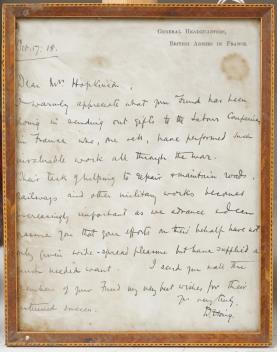 GENERAL HEADQUARTERS,
BRITISH ARMIES IN FRANCE.
Oct. 17. 18.
Dear Mrs Hopkinson,
I warmly appreciate what your Fund has been
doing in sending out gifts to the Labour Companies
in France who, one & all, have performed such
invaluable work all through the war.
Their task of helping to repair & maintain roads,
railways and other military works becomes
increasingly important as we advance & I can
assure you that your efforts on their behalf have not
only given wide-spread pleasure but have supplied a
much needed want. I send you and all the
members of your Fund my very best wishes for their
continued success.
Yrs very truly,
D. Haig.